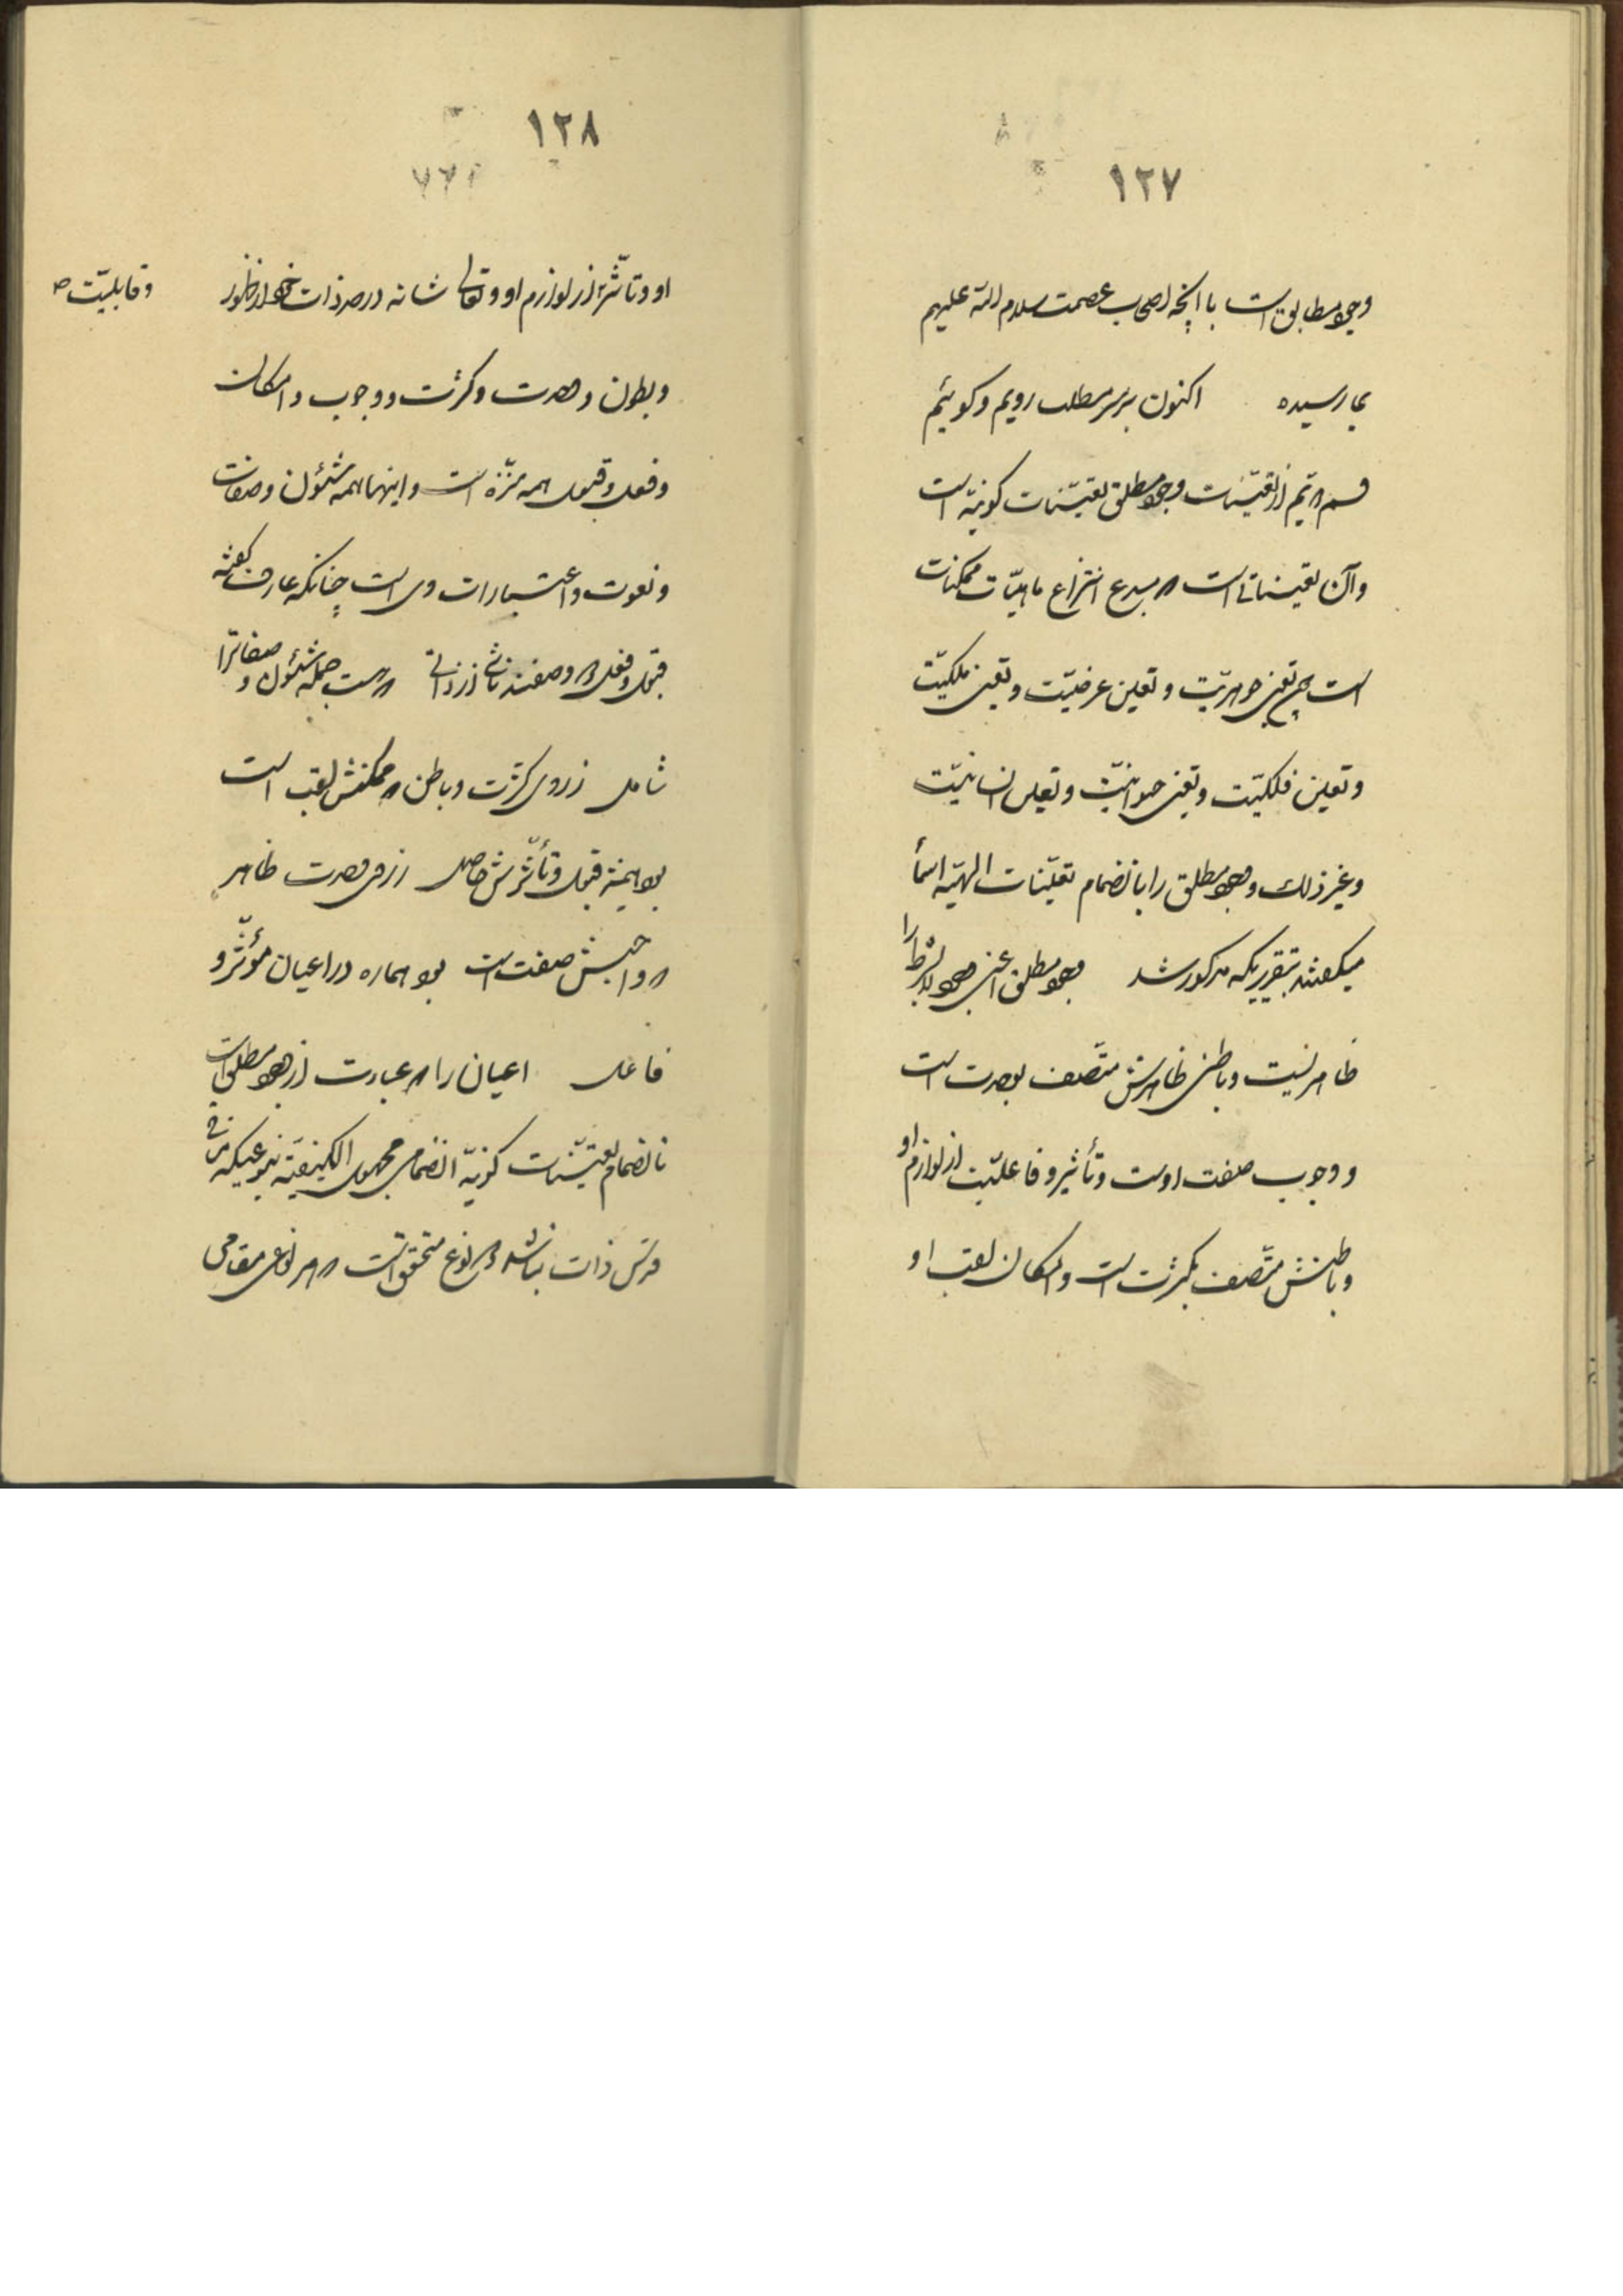 ١٢٧
وجود مطابق است با آنچه اصحاب عصمت سلام الله علیهم
بما رسیده اکنون بر سر مطلب رویم و کوئیم
قسم دویم از تعینات وجود مطلق تعینات کونیه است
و آن تعیناتی است که مبدء انتزاع ماهیات ممکنات
است تعین جوهریت و تعین عرضیت و تعین ملکیت
و تعین فلکیت و تعین حیوانیت و تعین انسانیت
و غیر ذلک و وجود مطلق را بانضمام تعینات الهیه اسمأ
میکفتند بتقریریکه مذکور شد وجود مطلق اعنی وجود لابشرط را
ظاهریست و باطنی ظاهرش متصف بوحدت است
و وجوب صفت اوست و تأثیر و فاعلیت از لوازم او
و باطنش متصف بکثرت است و امکان لقب او
١٢٨
و قابلیت
او و تأثر از لوازم او و تعالی شانه در حد ذات خود از ظهور
و بطون و وحدت و کثرت و وجوب و امکان
و فعل و قبول همه منزه است و اینها همه شئون و صفات
و نعوت و اعتبارات وی است چنانکه عارف کفته
قبول و فعل دو وصفند ناشی از ذاتی که هست جمله شئون و صفات را
شامل ز روی کثرت و باطن که ممکنش لقب است
بود همیشه قبول و تأثرش حاصل ز روی وحدت ظاهر
که واجبش صفت است بود هماره در اعیان مؤثر و
فاعل اعیان را که عبارت از وجود مطلق است
بانضمام تعینات کونیه انضمامی مجهول الکیفیة بنوعیکه منافی
قدس ذات نباشد انواع متحقق است که هر نوعی مقامی